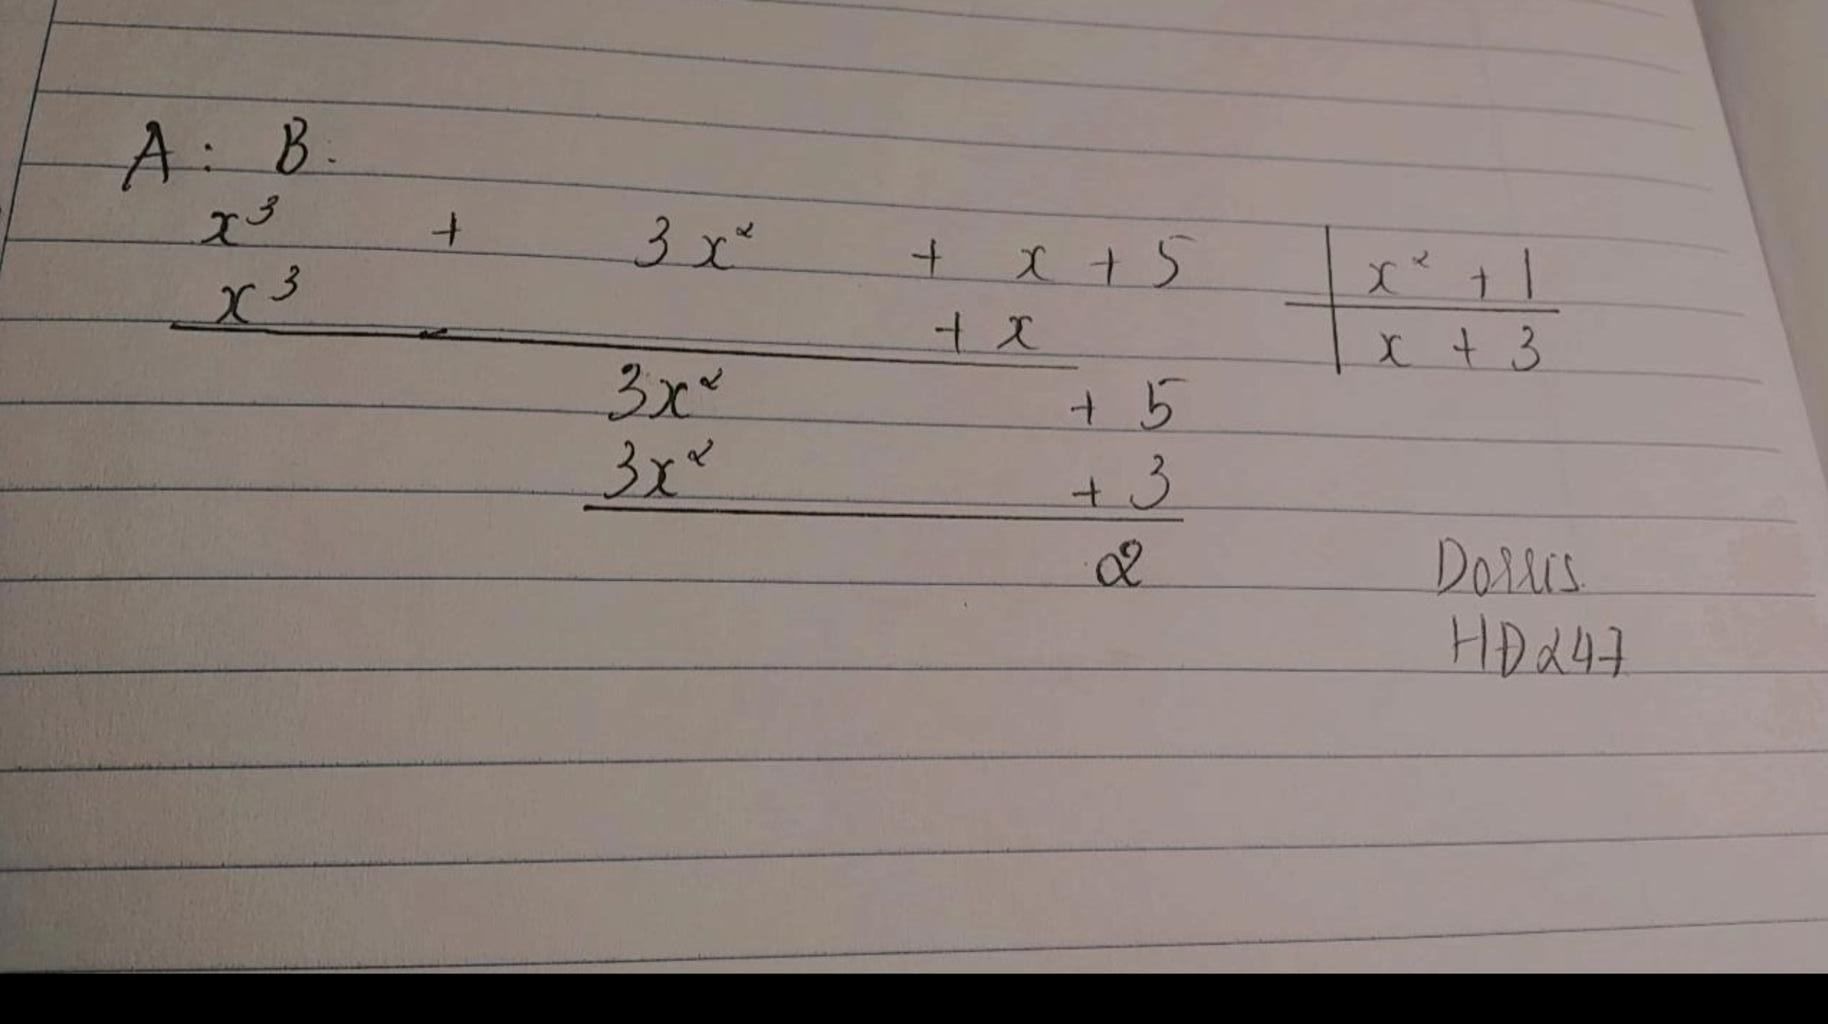 A : B.
x³ + 3x² + x + 5 | x² + 1
x³ + x | x + 3
3x² + 5
3x² + 3
2
HD247